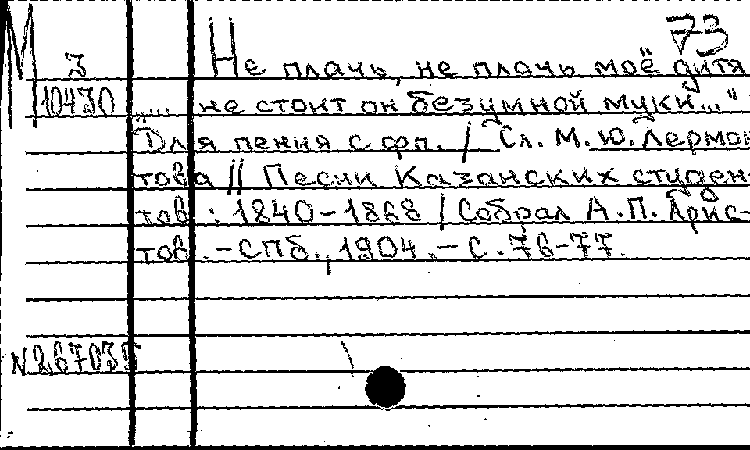 73
М
3 Не плачь, не плачь моё дитя
10430 „... не стоит он безумной муки..."
Для пения с фп. / Сл. М. Ю. Лермон-
това // Песни Казанских студен-
тов : 1840-1868 / Собрал А. П. Арис-
тов. - СПб., 1904. - С. 76-77.
N267035